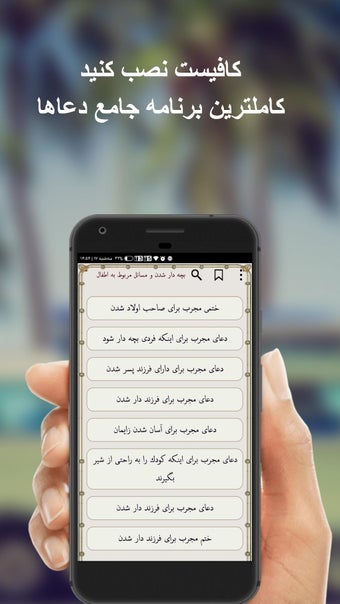 کافیست نصب کنید
کاملترین برنامه جامع دعاها
بچه دار شدن و مسائل مربوط به اطفال
ختمی مجرب برای صاحب اولاد شدن
دعای مجرب برای اینکه فردی بچه دار شود
دعای مجرب برای دارای فرزند پسر شدن
دعای مجرب برای فرزند دار شدن
دعای مجرب برای آسان شدن زایمان
دعای مجرب برای اینکه کودک را به راحتی از شیر
بگیرند
دعای مجرب برای فرزند دار شدن
ختم مجرب برای فرزند دار شدن